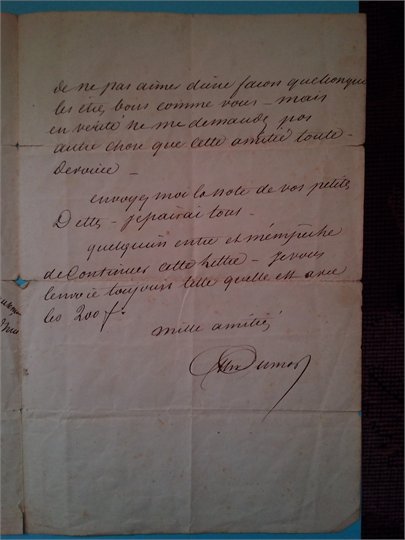 de ne pas aimer d'une facon quelconque
les etres bons comme vous – mais
en verité ne me demandez pas
autre chose que cette amitié toute
devouée –
envoyez moi la note de vos petites
Dettes – je paierai tous –
quelqu'un entre et m'empeche
de continuer cette lettre – je vous
l'envoie toujours telle quelle est avec
les 200 f.
mille amitiés
Alex Dumas